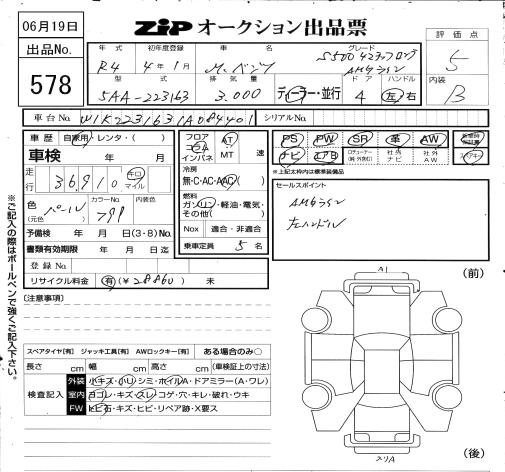 06月19日
ZIP オークション出品票
出品No.
578
年式 初年度登録 車名 グレード
R4 4年1月 M.ベンツ S500 4マチックロング
AMGライン
型式 排気量 ドア ハンドル
5AA-223163 3.000 ディーラー・並行 4 左 右
評価点
5
内装
B
車台No. W1K2231631A084401 シリアルNo.
車歴 自家用・レンタ・( )
車検 年 月
走行 36,910 キロ マイル
色 (元色) パール カラーNo. 799 内装色
予備検 年 月 日(3・8)No.
書類有効期限 年 月 日迄
登録No.
リサイクル料金 有(¥28860) 未
フロア コラム インパネ AT MT 速
冷房
無・C・AC・AAC
燃料
ガソリン・軽油・電気・その他( )
Nox 適合・非適合
乗車定員 5名
PS PW SR 革 AW
ナビ エアB 社外ナビ 社外AW
※上記太枠内は標準装備品
セールスポイント
AMGライン
左ハンドル
(注意事項)
スペアタイヤ【有】 ジャッキ工具【有】 AWロックキー【有】 ある場合のみ〇
長さ cm 幅 cm 高さ cm (車検証上の寸法)
検査記入
外装 小キズ・小リ・シミ・ホイルA・ドアミラー(A・ワレ)
室内 ヨゴレ・キズ・スレ・コゲ・穴・キレ・破れ・ウキ
FW トビ石・キズ・ヒビ・リペア跡・X要ス
※ご記入の際はボールペンで強くご記入下さい。
A1
(前)
(後)
スリA